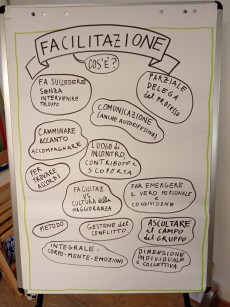 FACILITAZIONE
COS'È?
FA SUCCEDERE
SENZA
INTERVENIRE
TROPPO
PARZIALE
DELEGA
del PROCESSO
COMUNICAZIONE
(ANCHE AUTORIFLESSIVA)
CAMMINARE
ACCANTO
ACCOMPAGNARE
LUOGO di
INCONTRO,
CONTRIBUTO e
SCOPERTA
PER
TROVARE
ACCORDI
FACILITAZ.
CULTURA della
MAGGIORANZA
FAR EMERGERE
IL VERO PERSONALE
e CONDIVISIONE
METODO
GESTIONE del
CONFLITTO
ASCOLTARE
IL CAMPO del
GRUPPO
INTEGRALE:
CORPO-MENTE-EMOZIONI
DIMENSIONE
INDIVIDUALE
e COLLETTIVA